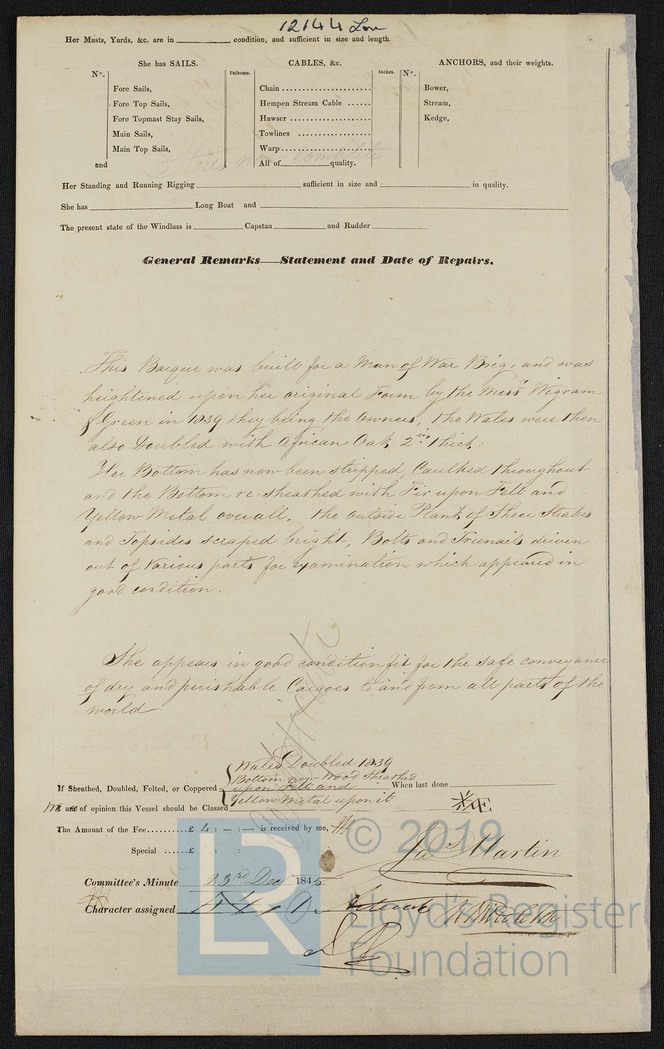 12144 Lon
Her Masts, Yards, &c. are in condition, and sufficient in size and length.
She has SAILS.
CABLES, &c.
ANCHORS, and their weights.
N°.
Fathoms.
Inches.
N°.
Fore Sails,
Chain
Bower,
Fore Top Sails,
Hempen Stream Cable
Stream,
Fore Topmast Stay Sails,
Hawser
Kedge,
Main Sails,
Towlines
Main Top Sails,
Warp
and
All of quality.
Her Standing and Running Rigging sufficient in size and in quality.
She has Long Boat and
The present state of the Windlass is Capstan and Rudder
General Remarks—Statement and Date of Repairs.
This Barque was built for a Man of War Brig, and was
heightened upon her original Form by the Messrs Wigram
& Green in 1839 they being the Owners, the Wales were then
also Doubled with African Oak 2 Ins thick:
Her Bottom has now been stripped Caulked throughout
and the Bottom re-sheathed with Fir upon Felt and
Yellow Metal overall, the outside Plank of Sheer Strakes
and Topsides scraped bright, Bolts and Treenails driven
out of Various parts for examination which appeared in
good condition.
She appears in good condition fit for the safe conveyance
of dry and perishable Cargoes to and from all parts of the
world
Wales Doubled 1839
Bottom now Wood Sheathed
If Sheathed, Doubled, Felted, or Coppered upon Felt and When last done
Yellow Metal upon it
are of opinion this Vessel should be Classed Æ
The Amount of the Fee £ 4 : - : - is received by me,
Special £ : :
Jas Martin
Committee's Minute 23rd Decr 184
Character assigned
© 2019
Lloyd's Register
Foundation
LR